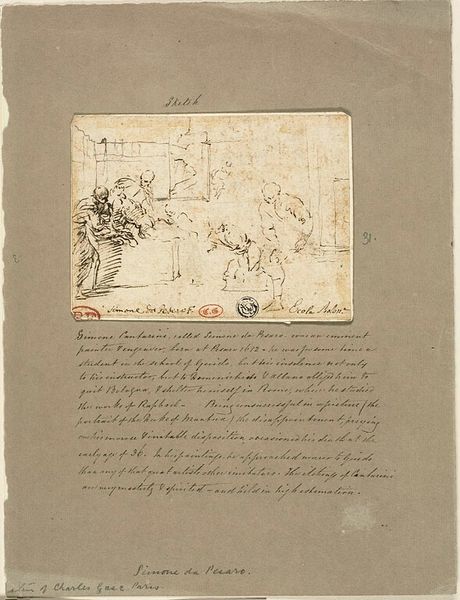 Sketch
31.
Simone da Pesaro
C.G
Ecol: Bolon:
Simone Cantarini, called Simone da Pesaro. was an eminent
painter & engraver, born at Pesaro 1612 - he was for some time a
student in the school of Guido, but his insolence not only
to his instructor, but to Domenichino & Albano obliged him to
quit Bologna, & shelter himself in Rome, where he studied
the works of Raphael - Being unsuccessful in a picture (the
portrait of the Duke of Mantua) the disappointment preying
on his morose & irritable disposition, occasioned his death at the
early age of 36. In his paintings he approached nearer to Guido
than any of that great artists other imitators. The etchings of Cantarini
are very masterly & spirited - and held in high estimation.
Simone da Pesaro.
of Charles Gasc Paris